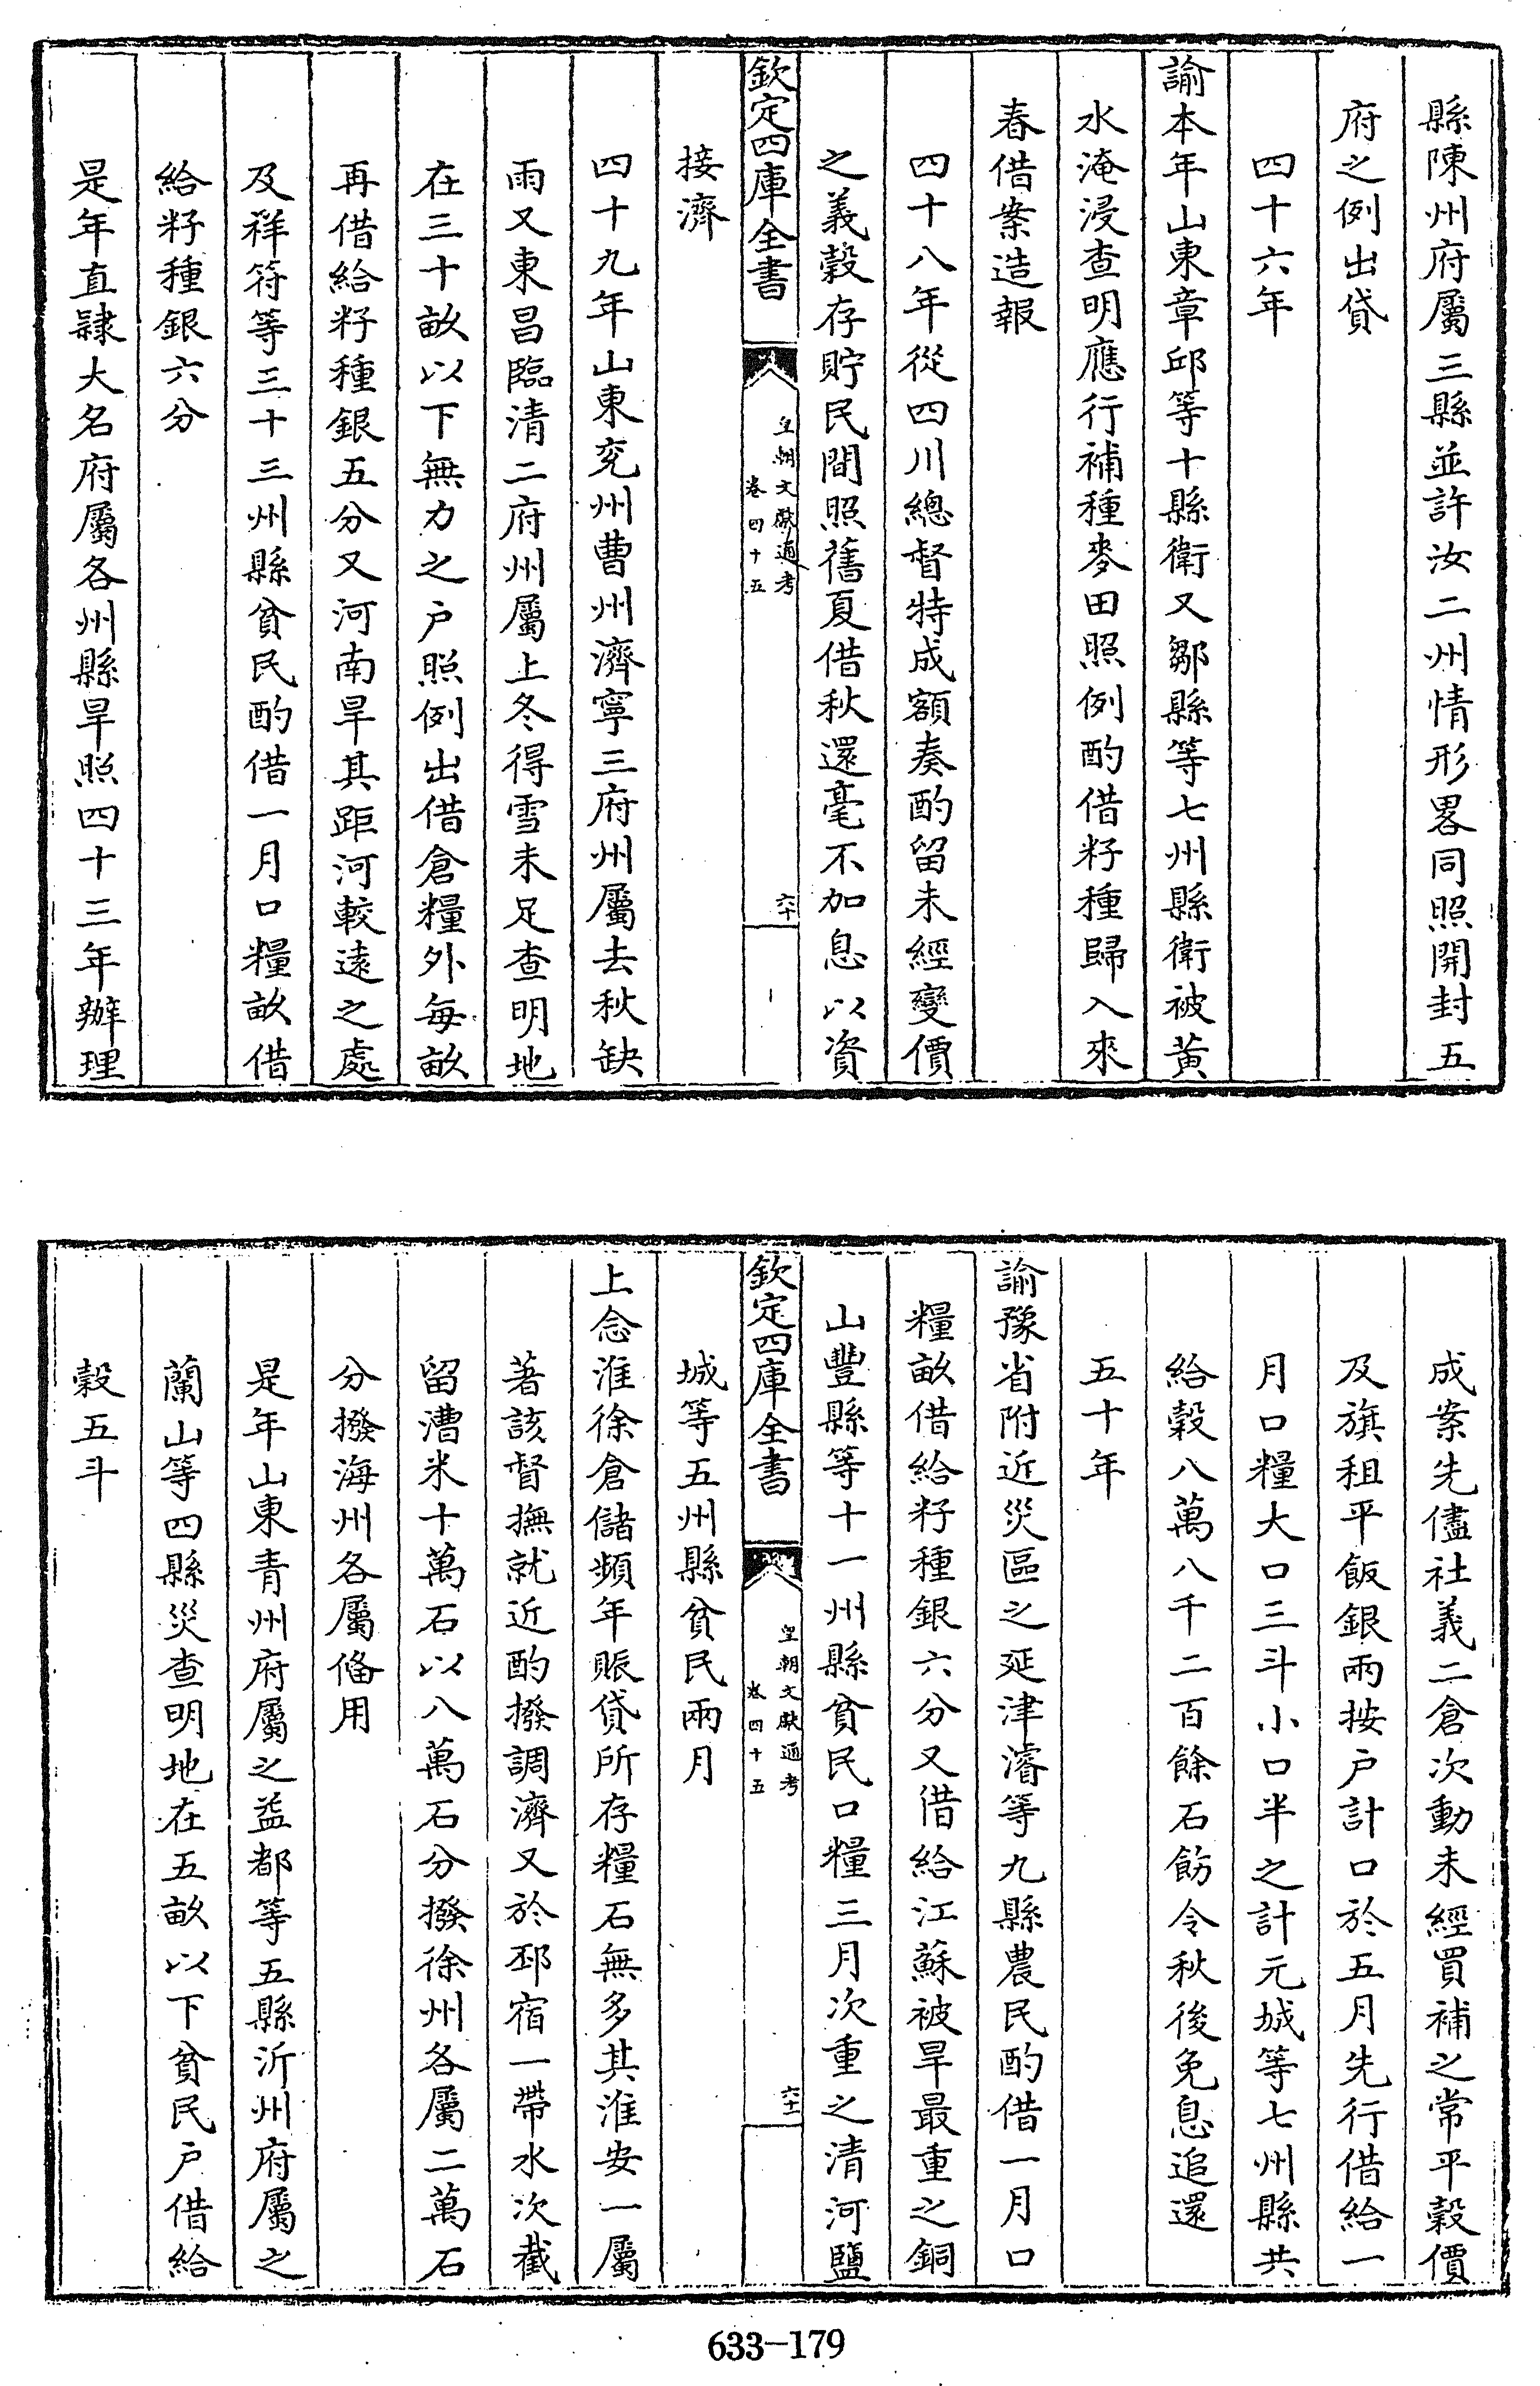 縣陳州府屬三縣並許汝二州情形畧同照開封五
府之例出貸
四十六年
諭本年山東章邱等十縣衛又鄒縣等七州縣衛被黃
水淹浸查明應行補種麥田照例酌借籽種歸入來
春借案造報
四十八年從四川總督特成額奏酌留未經變價
之義穀存貯民間照舊夏借秋還毫不加息以資
欽定四庫全書
皇朝文獻通考
卷四十五
六十
接濟
四十九年山東兖州曹州濟寧三府州屬去秋缺
雨又東昌臨清二府州屬上冬得雪未足查明地
在三十畝以下無力之户照例出借倉糧外每畝
再借給籽種銀五分又河南旱其距河較遠之處
及祥符等三十三州縣貧民酌借一月口糧畝借
給籽種銀六分
是年直隷大名府屬各州縣旱照四十三年辦理
成案先儘社義二倉次動未經買補之常平穀價
及旗租平飯銀兩按户計口於五月先行借給一
月口糧大口三斗小口半之計元城等七州縣共
給穀八萬八千二百餘石飭令秋後免息追還
五十年
諭豫省附近災區之延津濬等九縣農民酌借一月口
糧畝借給籽種銀六分又借給江蘇被旱最重之銅
山豐縣等十一州縣貧民口糧三月次重之清河鹽
欽定四庫全書
皇朝文獻通考
卷四十五
六十一
城等五州縣貧民兩月
上念淮徐倉儲頻年賑貸所存糧石無多其淮安一屬
著該督撫就近酌撥調濟又於邳宿一帶水次截
留漕米十萬石以八萬石分撥徐州各屬二萬石
分撥海州各屬俻用
是年山東青州府屬之益都等五縣沂州府屬之
蘭山等四縣災查明地在五畝以下貧民户借給
穀五斗
633-179